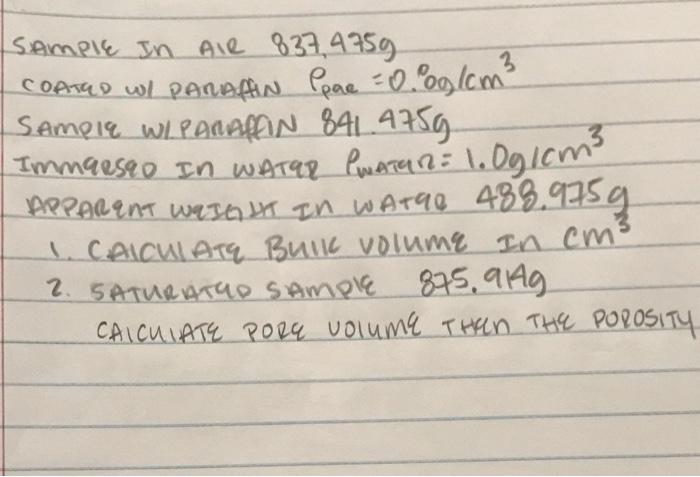 SAMPLE IN AIR 837.475g
COATED W/ PARAFFIN ρpar = 0.8g/cm³
SAMPLE W/PARAFFIN 841.475g
IMMERSED IN WATER ρWATER = 1.0g/cm³
APPARENT WEIGHT IN WATER 488.975g
1. CALCULATE BULK VOLUME IN cm³
2. SATURATED SAMPLE 875.914g
CALCULATE PORE VOLUME THEN THE POROSITY